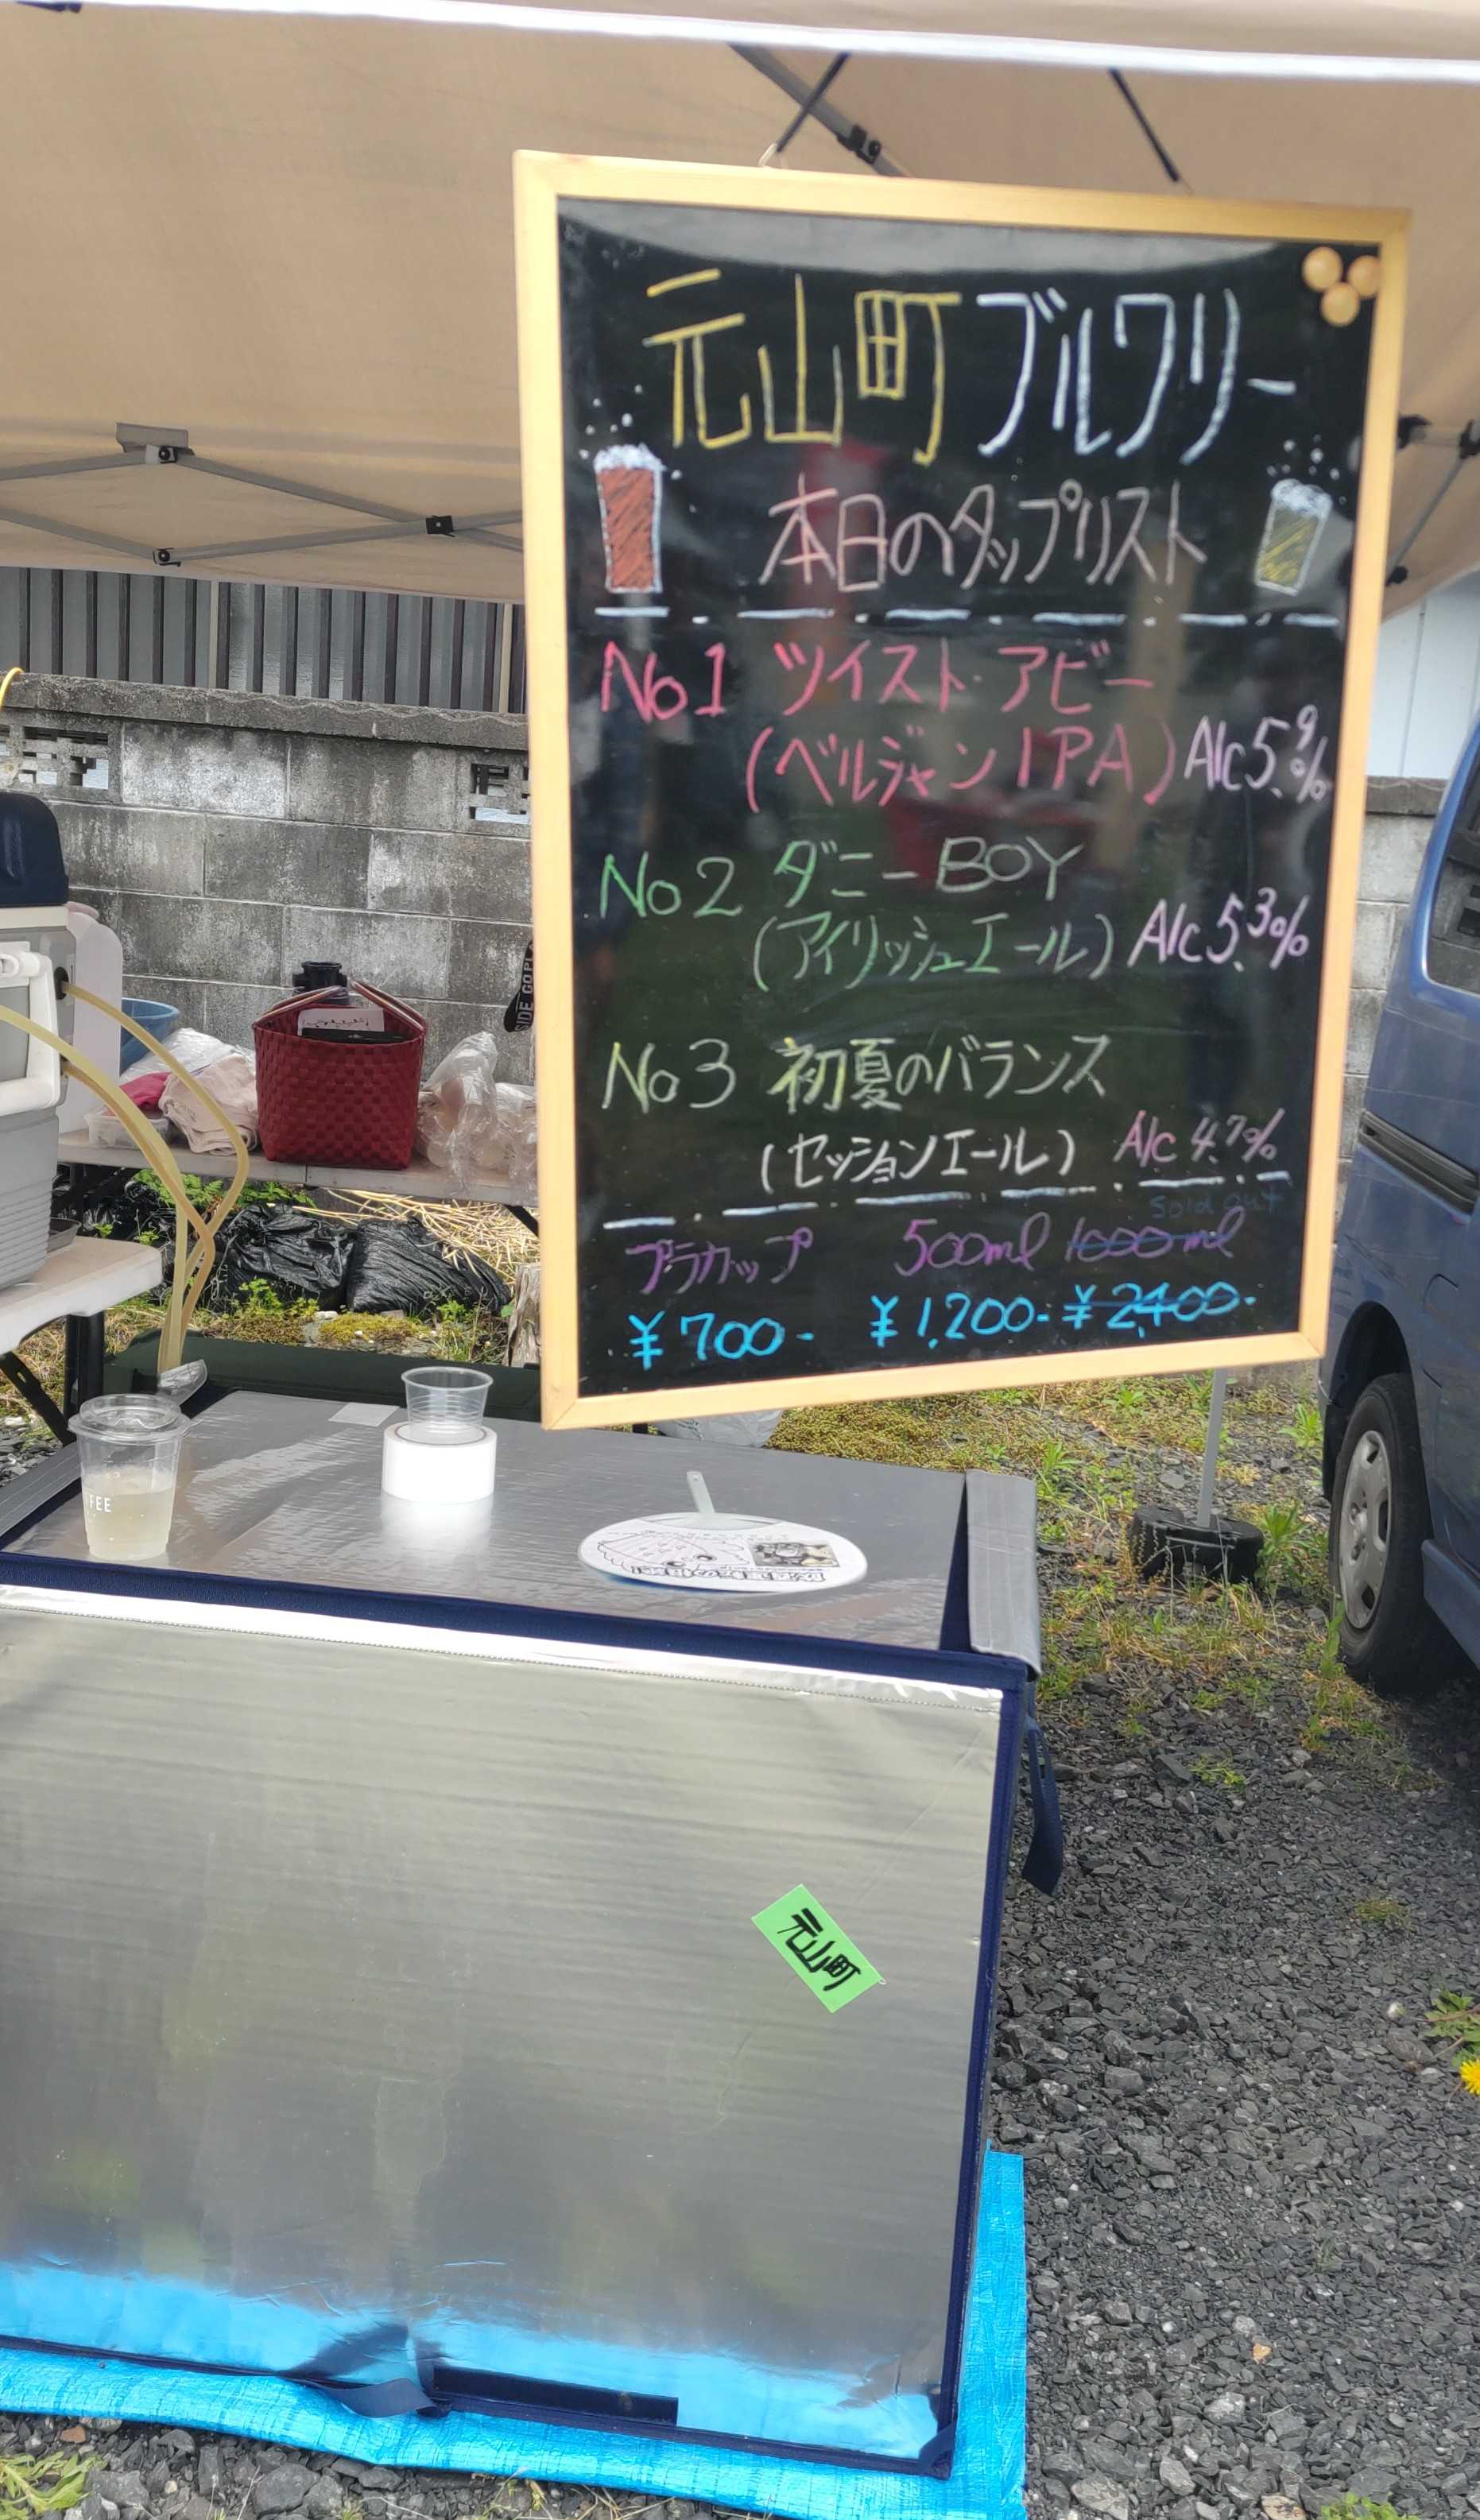 元山町ブルワリー
本日のタップリスト
No1 ツイスト・アビー
(ベルジャンIPA) Alc5.9%
No2 ダニーBOY
(アイリッシュエール) Alc5.3%
No3 初夏のバランス
(セッションエール) Alc4.7%
Sold out
プラカップ 500ml 1000ml
¥700- ¥1,200- ¥2,400-
FEE
元山町